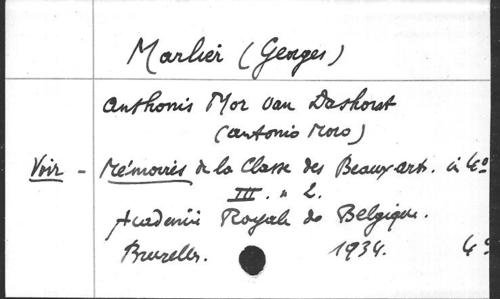 Marlier (Georges)
Anthonis Mor van Dashorst
(Antonio Moro)
Voir - Mémoires de la Classe des Beaux-arts. in 4º
III. " 2.
Académie Royale de Belgique.
Bruxelles. 1934. 4º